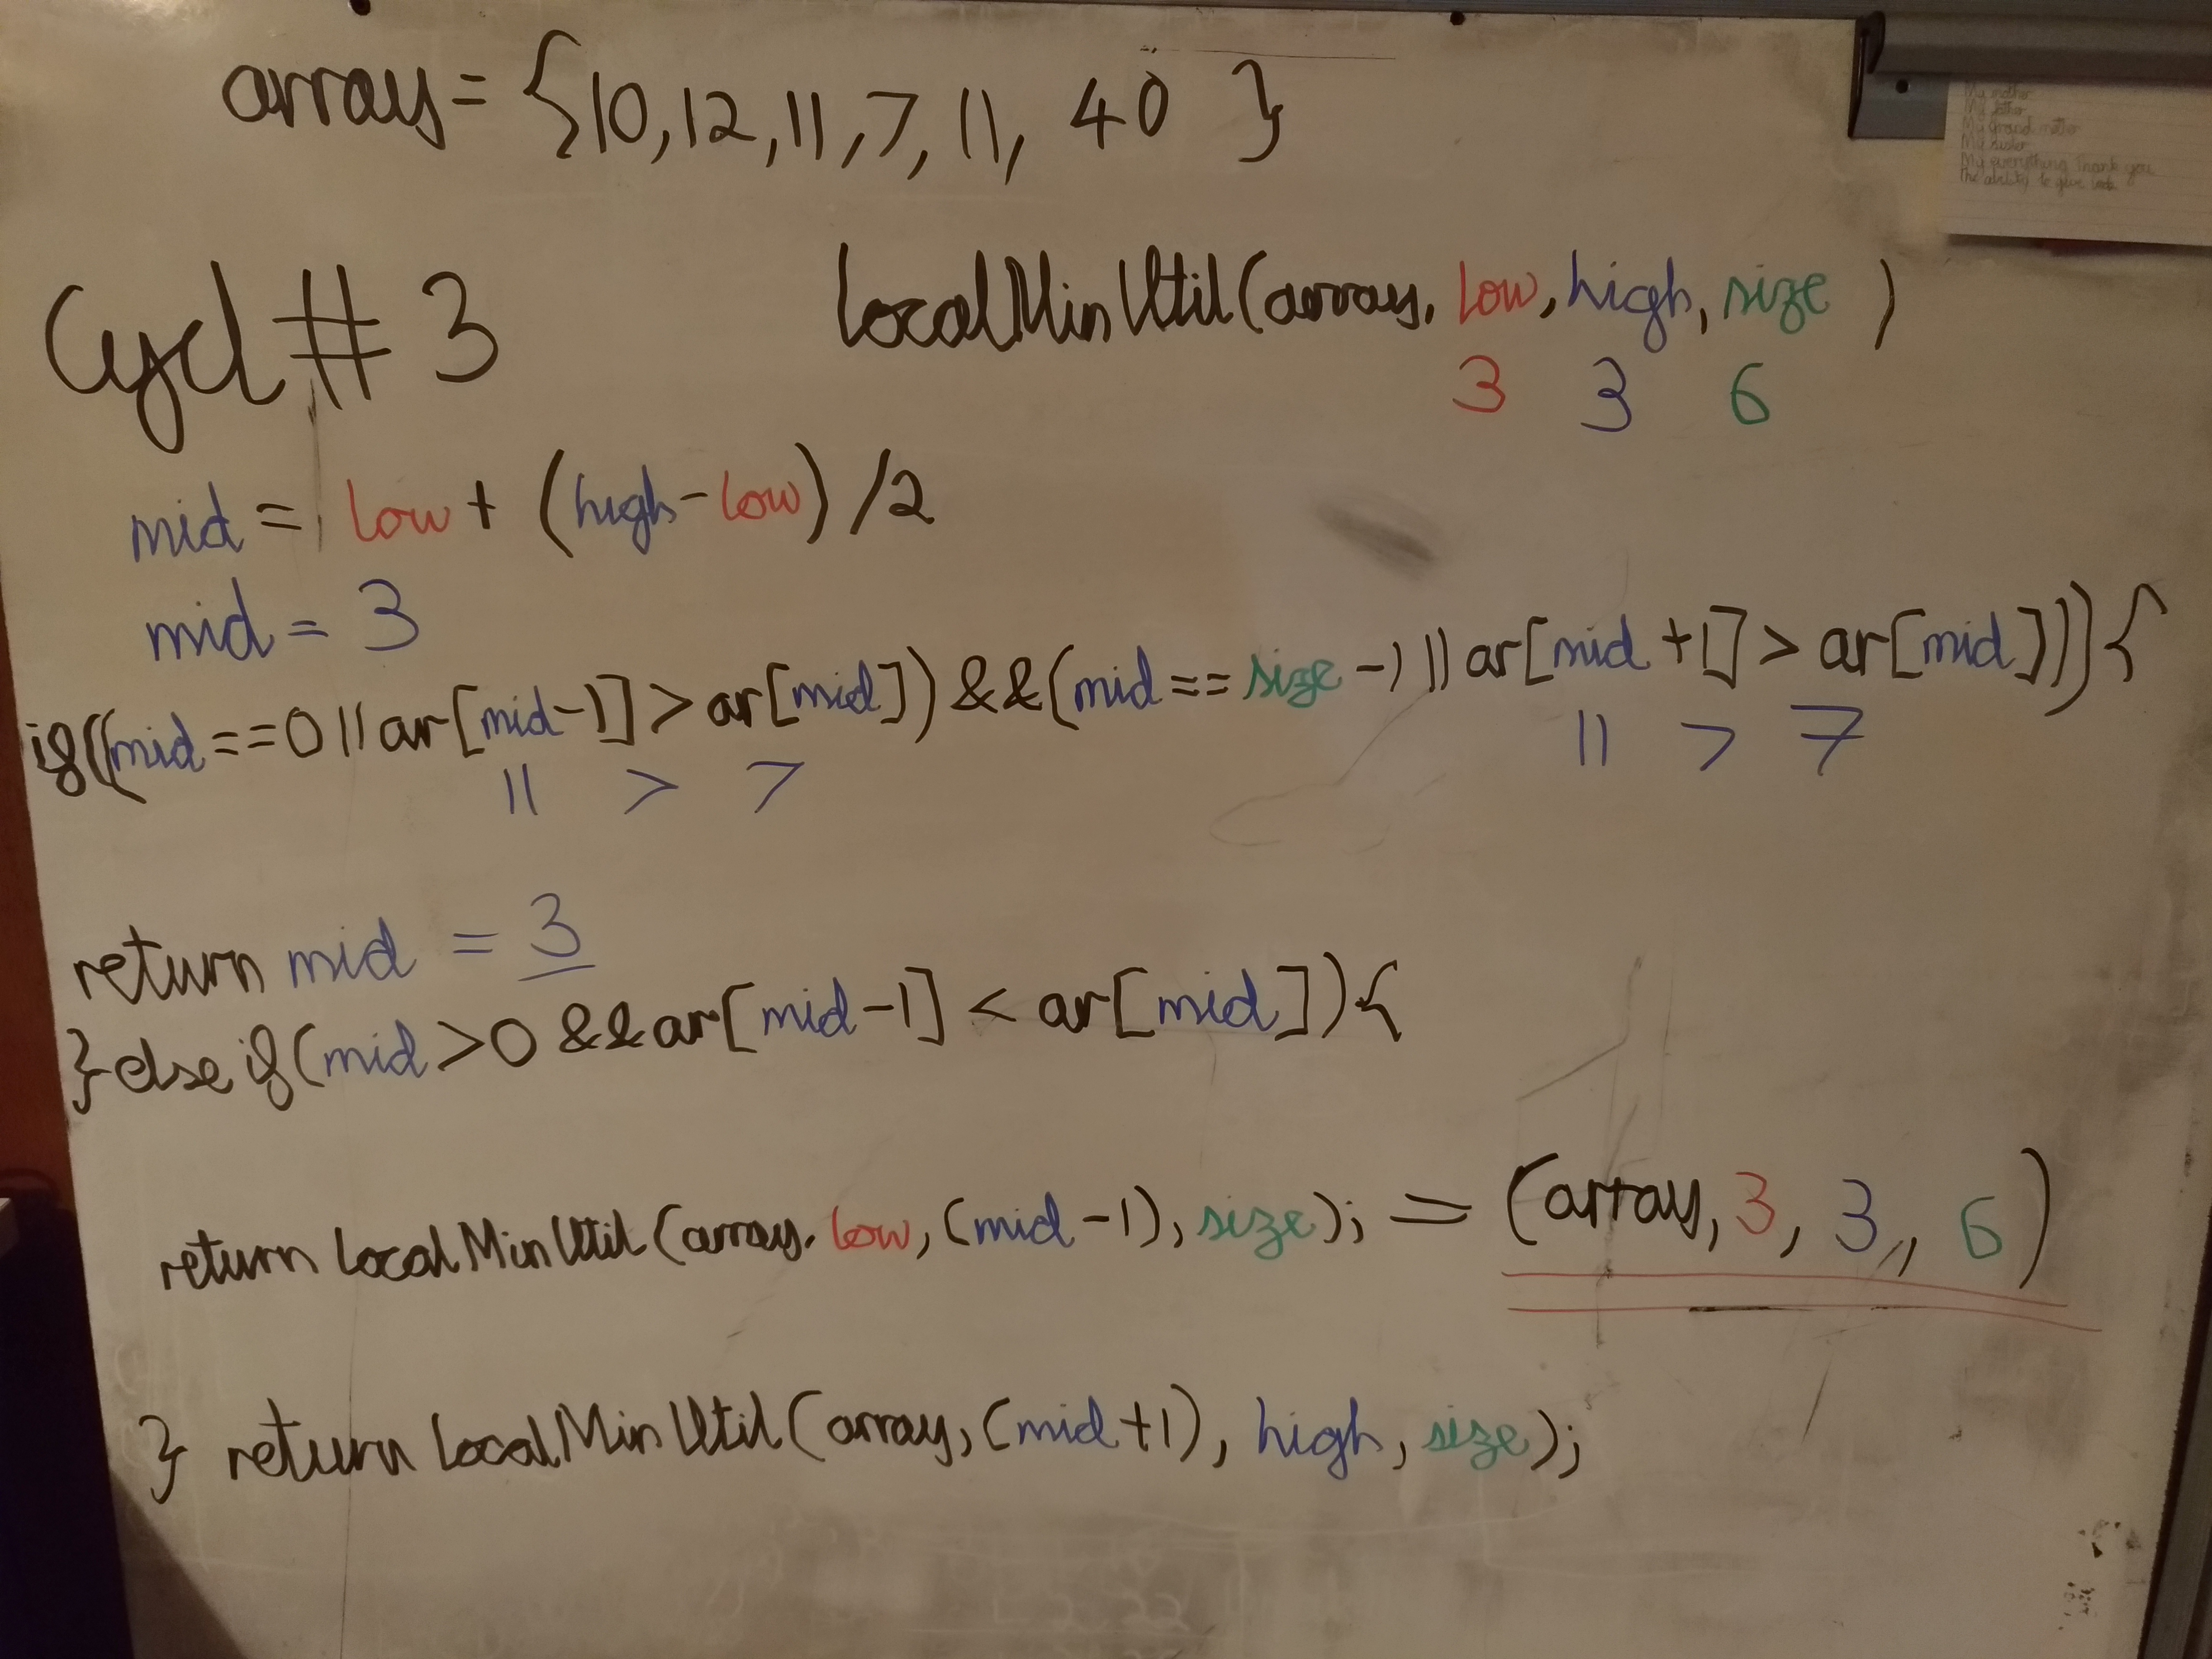 array = {10,12,11,7,11, 40 }
My mother
My father
My grand mother
My sister
My everything Thank you
The ability to give
Cycl # 3
LocalMinUtil(array, low, high, size )
3 3 6
mid = low + (high-low) /2
mid = 3
if((mid==0 || ar[mid-1] > ar[mid]) && (mid == size -1 || ar[mid +1] > ar[mid])){
11 > 7 11 > 7
return mid = 3
} else if(mid>0 && ar[mid-1] < ar[mid]){
return LocalMinUtil(array, low, (mid-1), size); = (array, 3, 3,, 6)
} return LocalMinUtil(array, (mid+1), high, size);